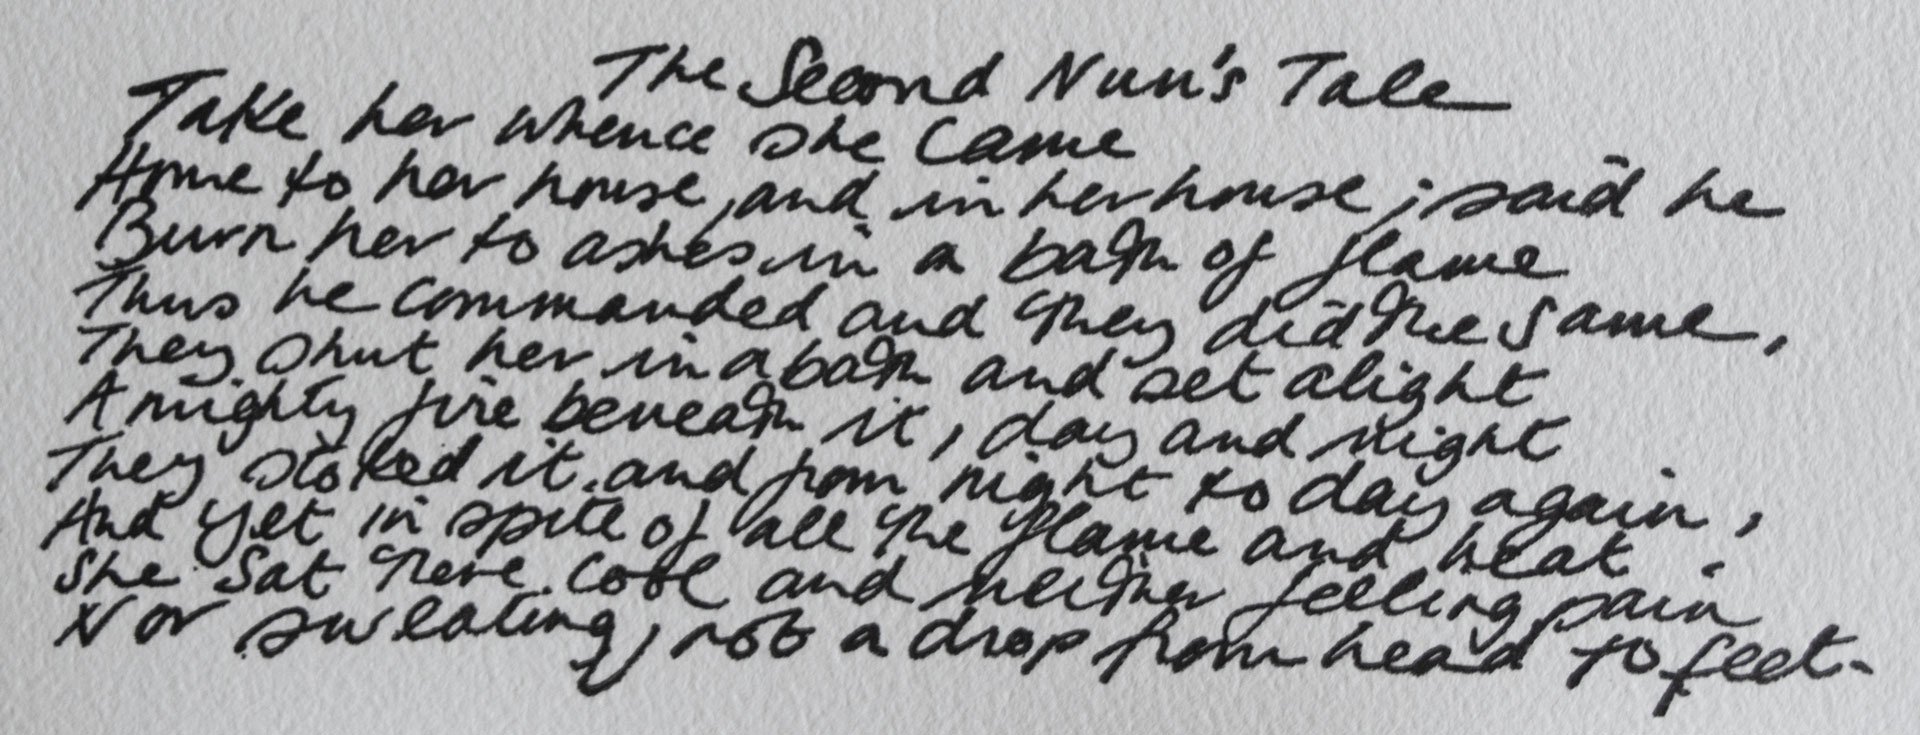 The Second Nun's Tale
Take her whence she came
Home to her house, and in her house; said he
Burn her to ashes in a bath of flame
Thus he commanded and they did the same,
They shut her in a bath and set alight
A mighty fire beneath it, day and night
They stoked it, and from night to day again,
And yet in spite of all the flame and heat.
She sat there cool and neither feeling pain
Nor sweating, not a drop from head to feet.